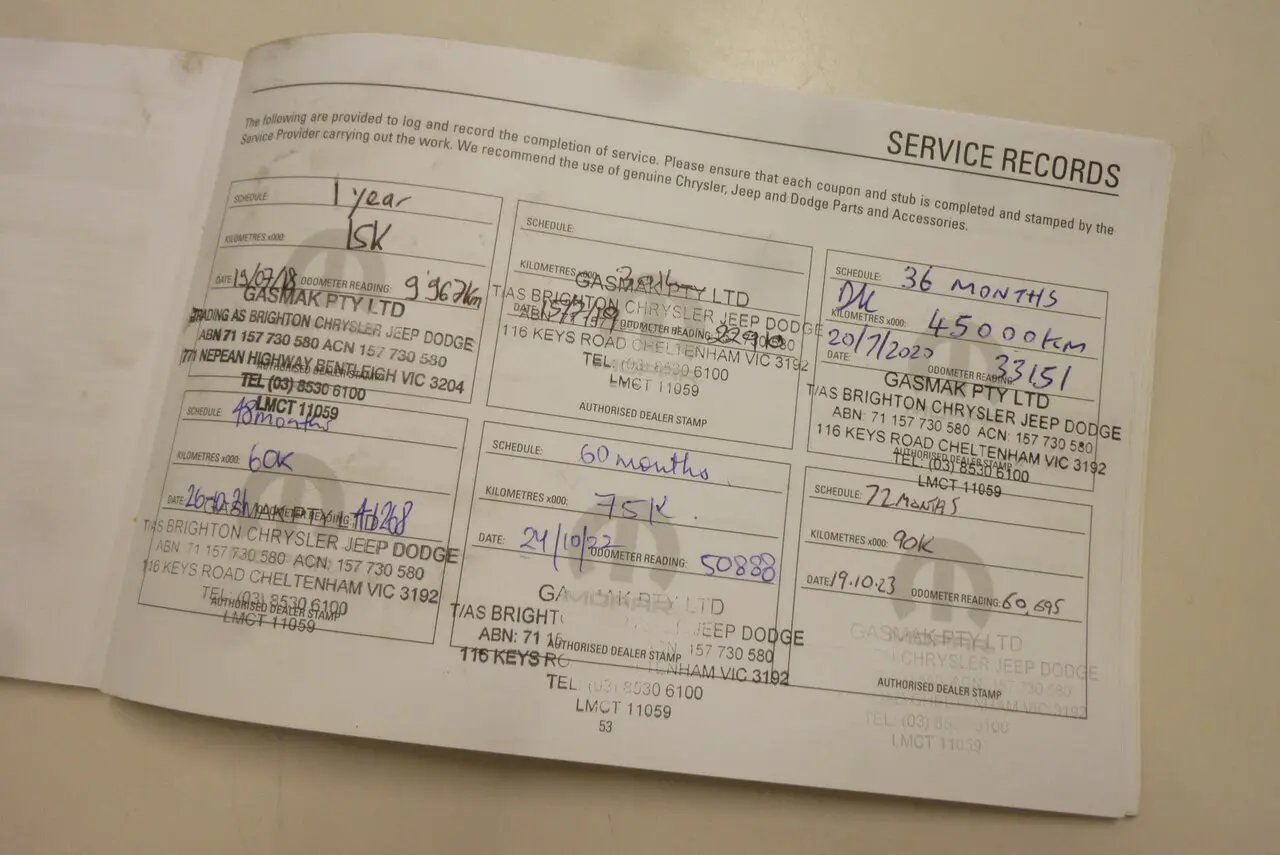 SERVICE RECORDS
The following are provided to log and record the completion of service. Please ensure that each coupon and stub is completed and stamped by the
Service Provider carrying out the work. We recommend the use of genuine Chrysler, Jeep and Dodge Parts and Accessories.
SCHEDULE: 1 year
KILOMETRES x000: 15K
DATE: 19/07/18 ODOMETER READING: 9967km
GASMAK PTY LTD
TRADING AS BRIGHTON CHRYSLER JEEP DODGE
ABN 71 157 730 580 ACN 157 730 580
771 NEPEAN HIGHWAY BENTLEIGH VIC 3204
AUTHORISED DEALER STAMP
TEL (03) 8530 6100
LMCT 11059
SCHEDULE:
KILOMETRES x000:
GASMAK PTY LTD
T/AS BRIGHTON CHRYSLER JEEP DODGE
DATE: ODOMETER READING:
116 KEYS ROAD CHELTENHAM VIC 3192
TEL: (03) 8530 6100
LMCT 11059
AUTHORISED DEALER STAMP
SCHEDULE: 36 MONTHS
KILOMETRES x000: 45000km
DATE: 20/7/2020 ODOMETER READING: 33151
GASMAK PTY LTD
T/AS BRIGHTON CHRYSLER JEEP DODGE
ABN: 71 157 730 580 ACN: 157 730 580
116 KEYS ROAD CHELTENHAM VIC 3192
AUTHORISED DEALER STAMP
TEL: (03) 8530 6100
LMCT 11059
SCHEDULE: 48months
KILOMETRES x000: 60K
DATE: 26.10.21 ODOMETER READING:
GASMAK PTY LTD
T/AS BRIGHTON CHRYSLER JEEP DODGE
ABN: 71 157 730 580 ACN: 157 730 580
116 KEYS ROAD CHELTENHAM VIC 3192
TEL: (03) 8530 6100
AUTHORISED DEALER STAMP
LMCT 11059
SCHEDULE: 60 months
KILOMETRES x000: 75K
DATE: 24/10/22 ODOMETER READING: 50888
GASMAK PTY LTD
T/AS BRIGHT JEEP DODGE
ABN: 71 15 157 730 580
AUTHORISED DEALER STAMP
116 KEYS RO TENHAM VIC 3192
TEL: (03) 8530 6100
LMCT 11059
SCHEDULE: 72 MONTHS
KILOMETRES x000: 90K
DATE: 19.10.23 ODOMETER READING: 60,695
GASMAK PTY LTD
CHRYSLER JEEP DODGE
AUTHORISED DEALER STAMP
VIC 3192
TEL: (03) 8530 6100
LMCT 11059
53